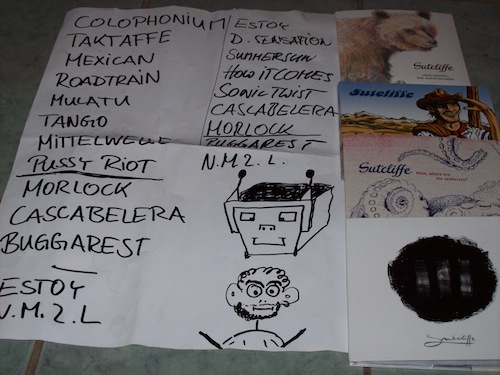 COLOPHONIUM
TAKTAFFE
MEXICAN
ROADTRAIN
MULATU
TANGO
MITTELWELLE
PUSSY RIOT
MORLOCK
CASCABELERA
BUGGAREST
ESTOY
N.M.2.L
ESTOY
D. SENSATION
SUMMERSUN
HOW IT COMES
SONIC TWIST
CASCABELERA
MORLOCK
BUGGAREST
N.M.2.L.
Sutcliffe
Sutcliffe
Sutcliffe
Mom, where are
the
Sutcliffe